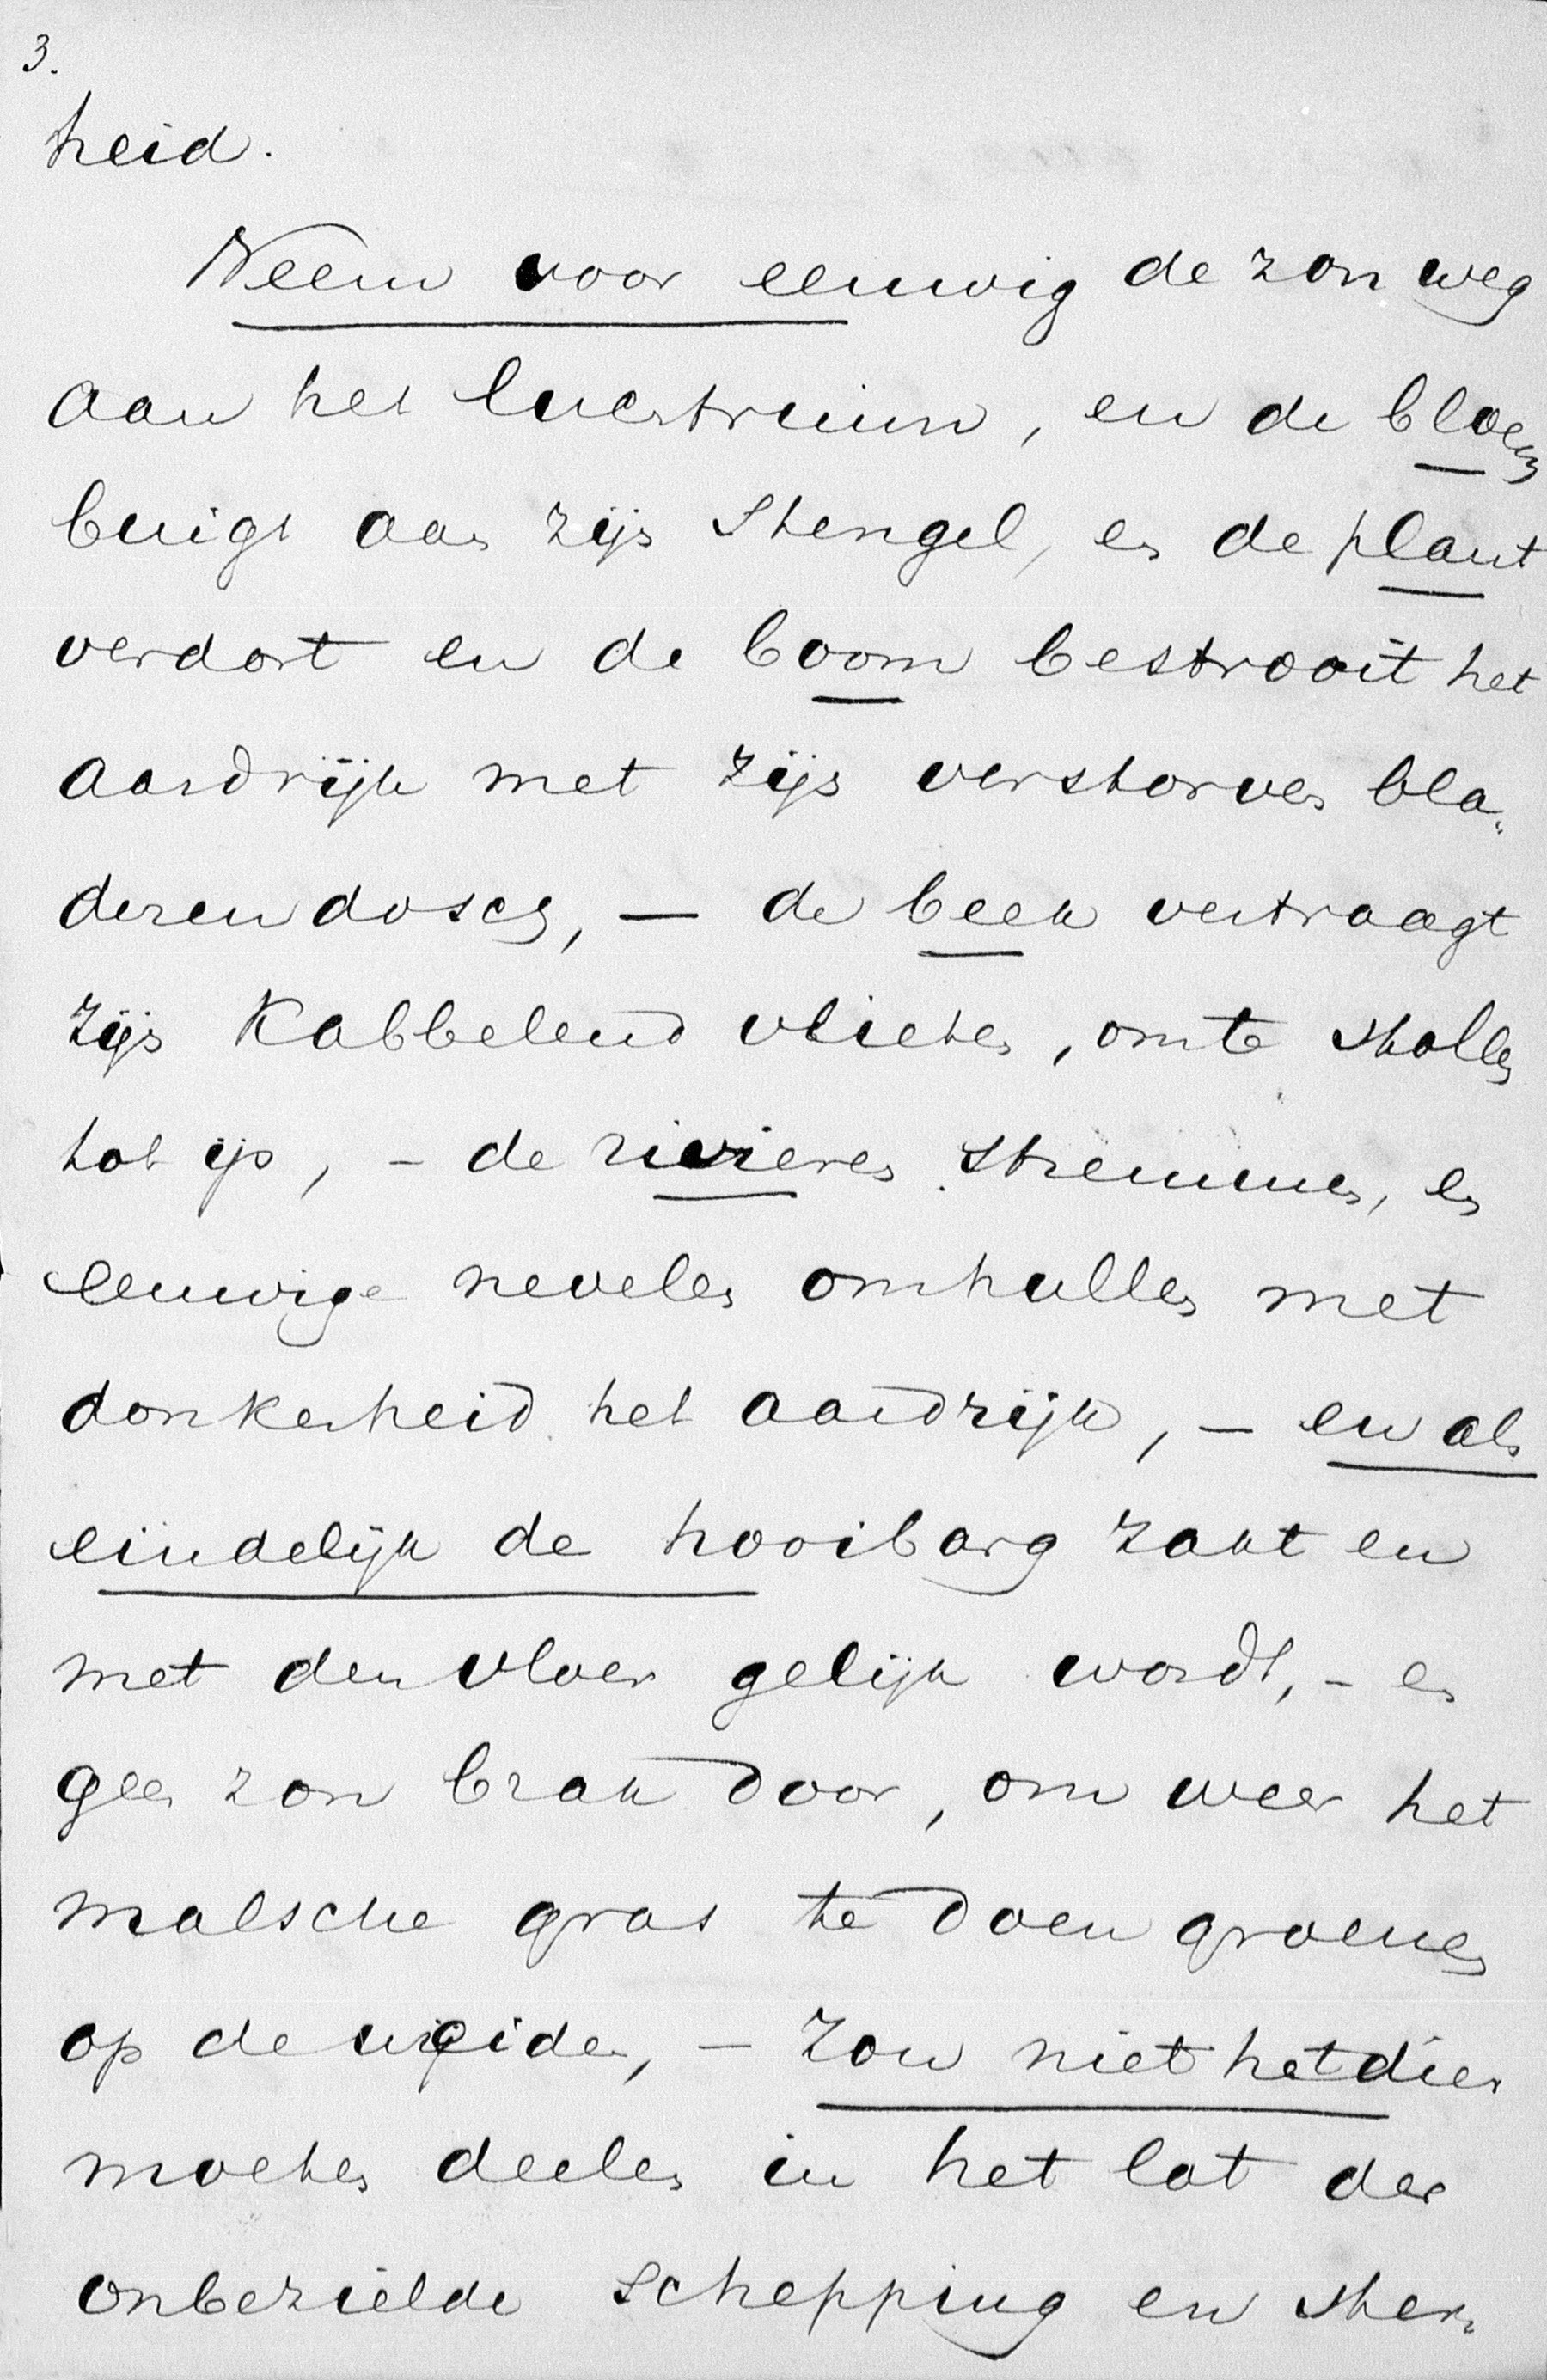 3.
heid.
Neem voor eeuwig de zon weg
aan het luchtruim, en de bloem
buigt aan zijn stengel, en de plant
verdort en de boom bestrooit het
aardrijk met zijn verstorven bla-
derendosch, — de beek vertraagt
zijn kabbelend vlieten, om te stollen
tot ijs, – de rivieren stremmen, en
eeuwige nevelen omhullen met
donkerheid het aardrijk, – en als
eindelijk de hooibarg zakt en
met den vloer gelijk wordt, – en
geen zon brak door, om weer het
malsche gras te doen groenen
op de weiden, – zou niet het dier
moeten deelen in het lot der
onbezielde schepping en ster-